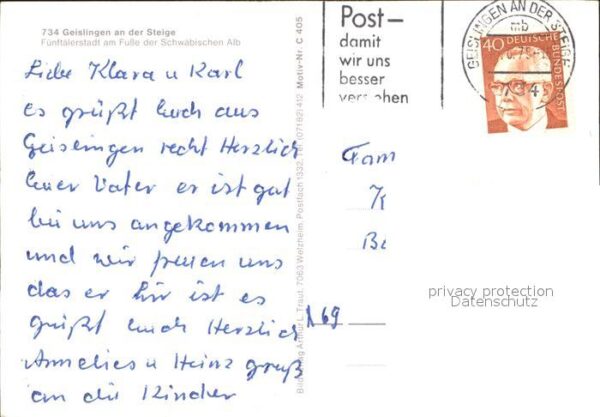 734 Geislingen an der Steige
Fünftälerstadt am Fuße der Schwäbischen Alb
Liebe Klara u Karl
es grüßt Euch aus
Geislingen recht Herzlich
Euer Vater er ist gut
bei uns angekommen
und wir freuen uns
das er hir ist es
grüßt Euch Herzlich
Annelies u Heinz gruß
an die Kinder
Motiv-Nr. C 405
Bildverlag Arthur L. Traut, 7063 Welzheim, Postfach 1332, Tel. (07182) 412
Post—
damit
wir uns
besser
verstehen
GEISLINGEN AN DER STEIGE
mb
40 DEUTSCHE BUNDESPOST
Fam
K
Ba
privacy protection
Datenschutz